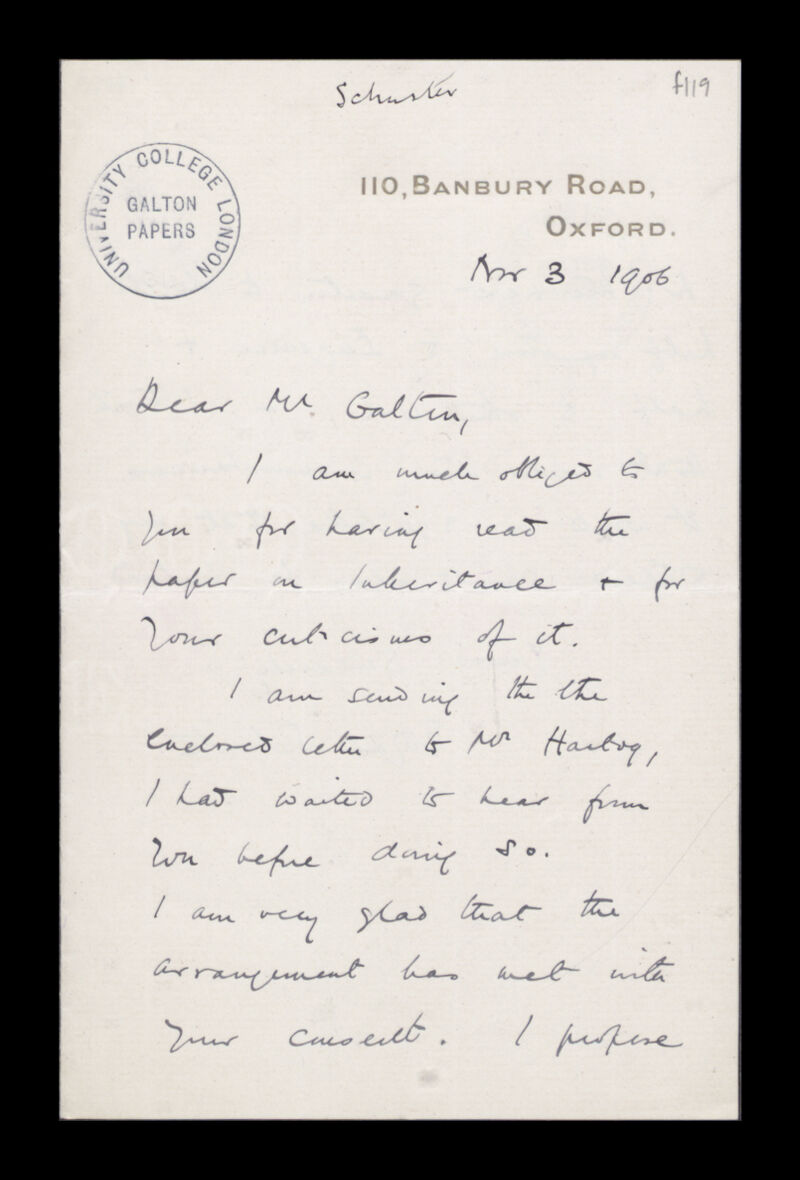 Schuster
f119
UNIVERSITY COLLEGE LONDON
GALTON
PAPERS
110, BANBURY ROAD,
OXFORD.
Nov 3 1906
Dear Mr. Galton,
I am much obliged to
you for having read the
paper on Inheritance + for
your criticisms of it.
I am sending the the
enclosed letter to Mr Hartog,
I had waited to hear from
you before doing so.
I am very glad that the
arrangement has met with
your consent. I propose